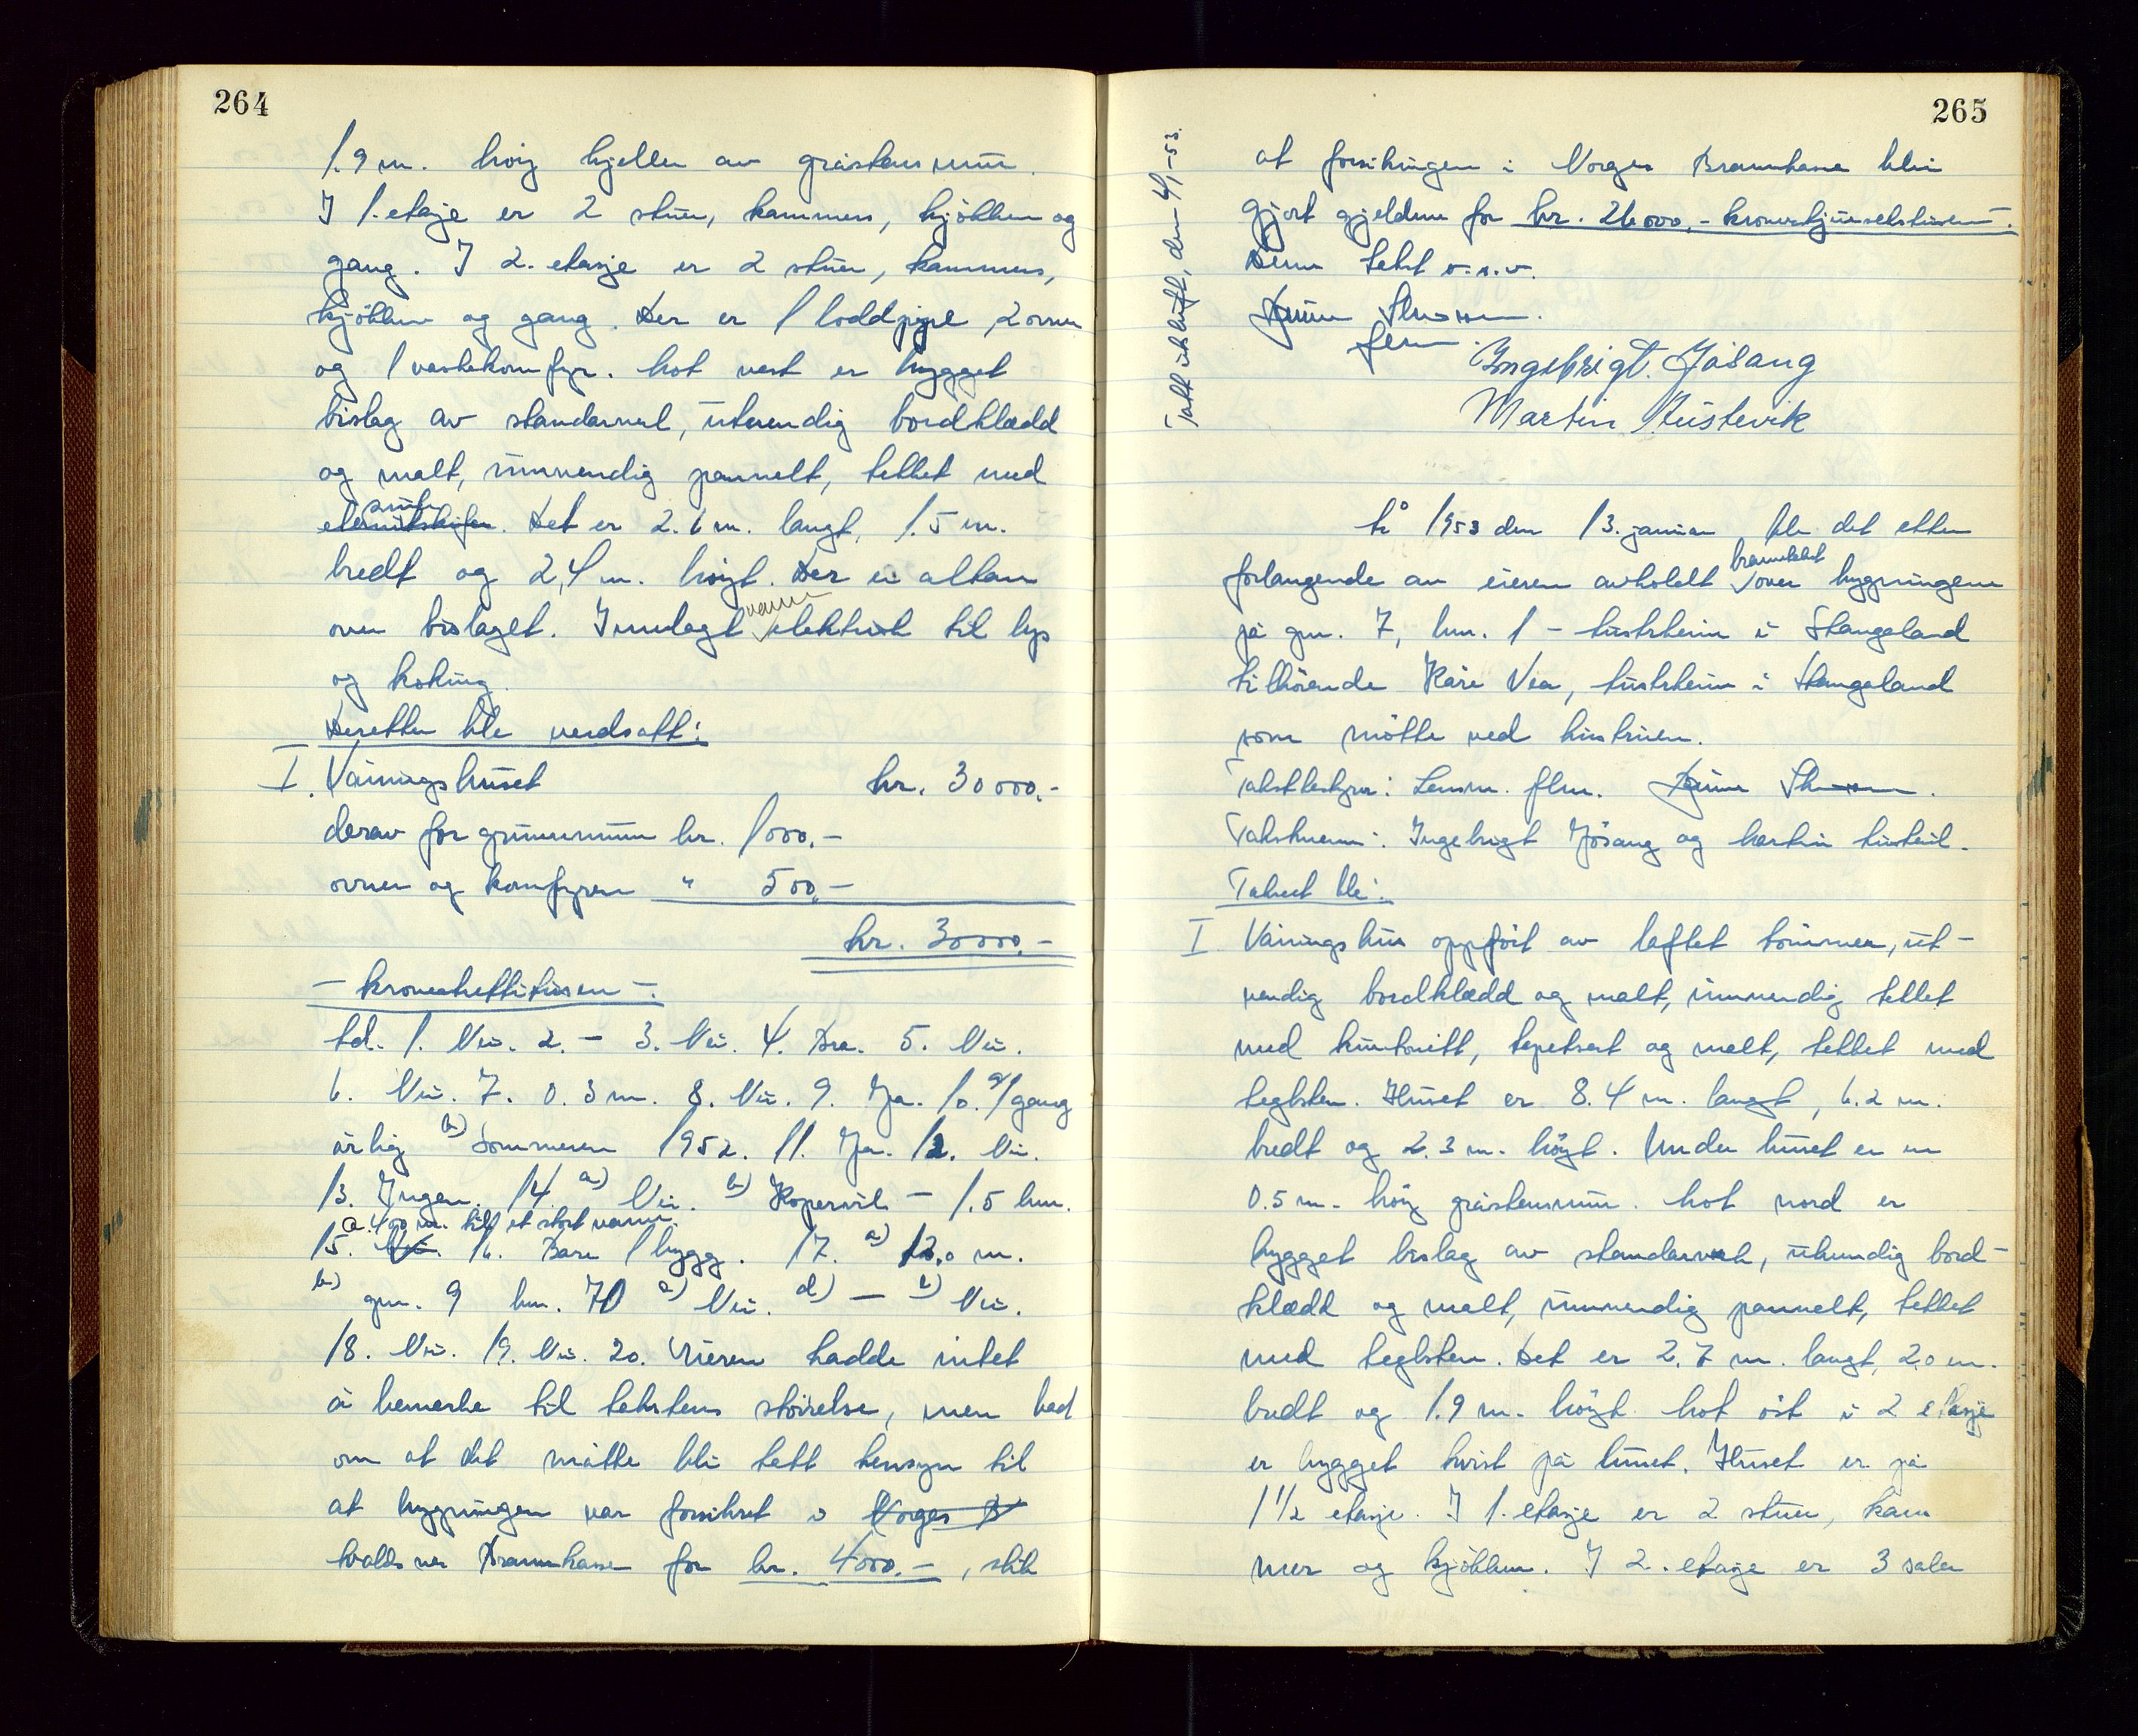 264
1.9 m. høig kjeller av gråstensmur.
I 1. etasje er 2 stuer, kammers, kjøkken og
gang. I 2. etasje er 2 stuer, kammers,
kjøkken og gang. Der er 1 loddpipe, 2 ovner
og 1 vaskekomfyr. Mot vest er bygget
bislag av standarverk, utvendig bordklædd
og malt, innvendig pannelt, tekket med
eternitskifer. Det er 2.6 m. langt, 1.5 m.
bredt og 2,4 m. høigt. Der er altan
over bislaget. Innlagt vann elektrisk til lys
og koking.
Deretter ble verdsatt:
I. Våningshuset kr. 30 000.-
derav for grunnmuren kr. 1 000.-
ovner og komfyren " 500.-
kr. 30000.-
- kronertrettitusen -.
td. 1. Nei. 2. - 3. Nei. 4. Bra. 5. Nei.
6. Nei. 7. 0.3 m. 8. Nei. 9. Ja. 10. a) 1 gang
årlig b) Sommeren 1952. 11. Ja. 12. Nei.
13. Ingen. 14. a) Nei. b) Kopervik - 1.5 km.
a. 400 m. til et stort vann.
15. Nei. 16. Bare 1 bygg. 17. a) 12.0 m.
b) gnr. 9 bnr. 70 c) Nei. d) - e) Nei.
18. Nei. 19. Nei. 20. Eieren hadde intet
å bemerke til takstens størrelse, men bad
om at det måtte bli tatt hensyn til
at bygningen var forsikret i Norges B
Brannkasse for kr. 4000.-, slik
265
Tatt utskrift, den 4/1-53.
at forsikringen i Norges Brannkasse blir
gjort gjeldene for kr. 26 000.- kronertjuesekstusen -.
Denne takst o.s.v.
flm.
Ingebrigt. Jøsang
Martin Austevik
År 1953 den 13. januar ble det etter
forlangende av eieren avholdt branntakst over bygningene
på gnr. 7, bnr. 1 - i Stangeland
tilhørende Kåre Vea, i Stangeland
som møtte ved hustruen.
Takstbestyrer: Lensm. flm.
Takstmenn: Ingebrigt Jøsang og Martin Austevik.
Takset ble:
I. Våningshus oppført av laftet tømmer, ut-
vendig bordklædd og malt, innvendig tekket
med huntonitt, tapetsert og malt, tekket med
teglsten. Huset er 8.4 m. langt, 6.2 m.
bredt og 2.3 m. høigt. Under huset er en
0.5 m. høig gråstensmur. Mot nord er
bygget bislag av standarverk, utvendig bord-
klædd og malt, innvendig pannelt, tekket
med teglsten. Det er 2.7 m. langt, 2.0 m.
bredt og 1.9 m. høigt. Mot øst i 2 etasje
er bygget kvist på huset. Huset er på
1 1/2 etasje. I 1. etasje er 2 stuer, kam
mer og kjøkken. I 2. etasje er 3 saler